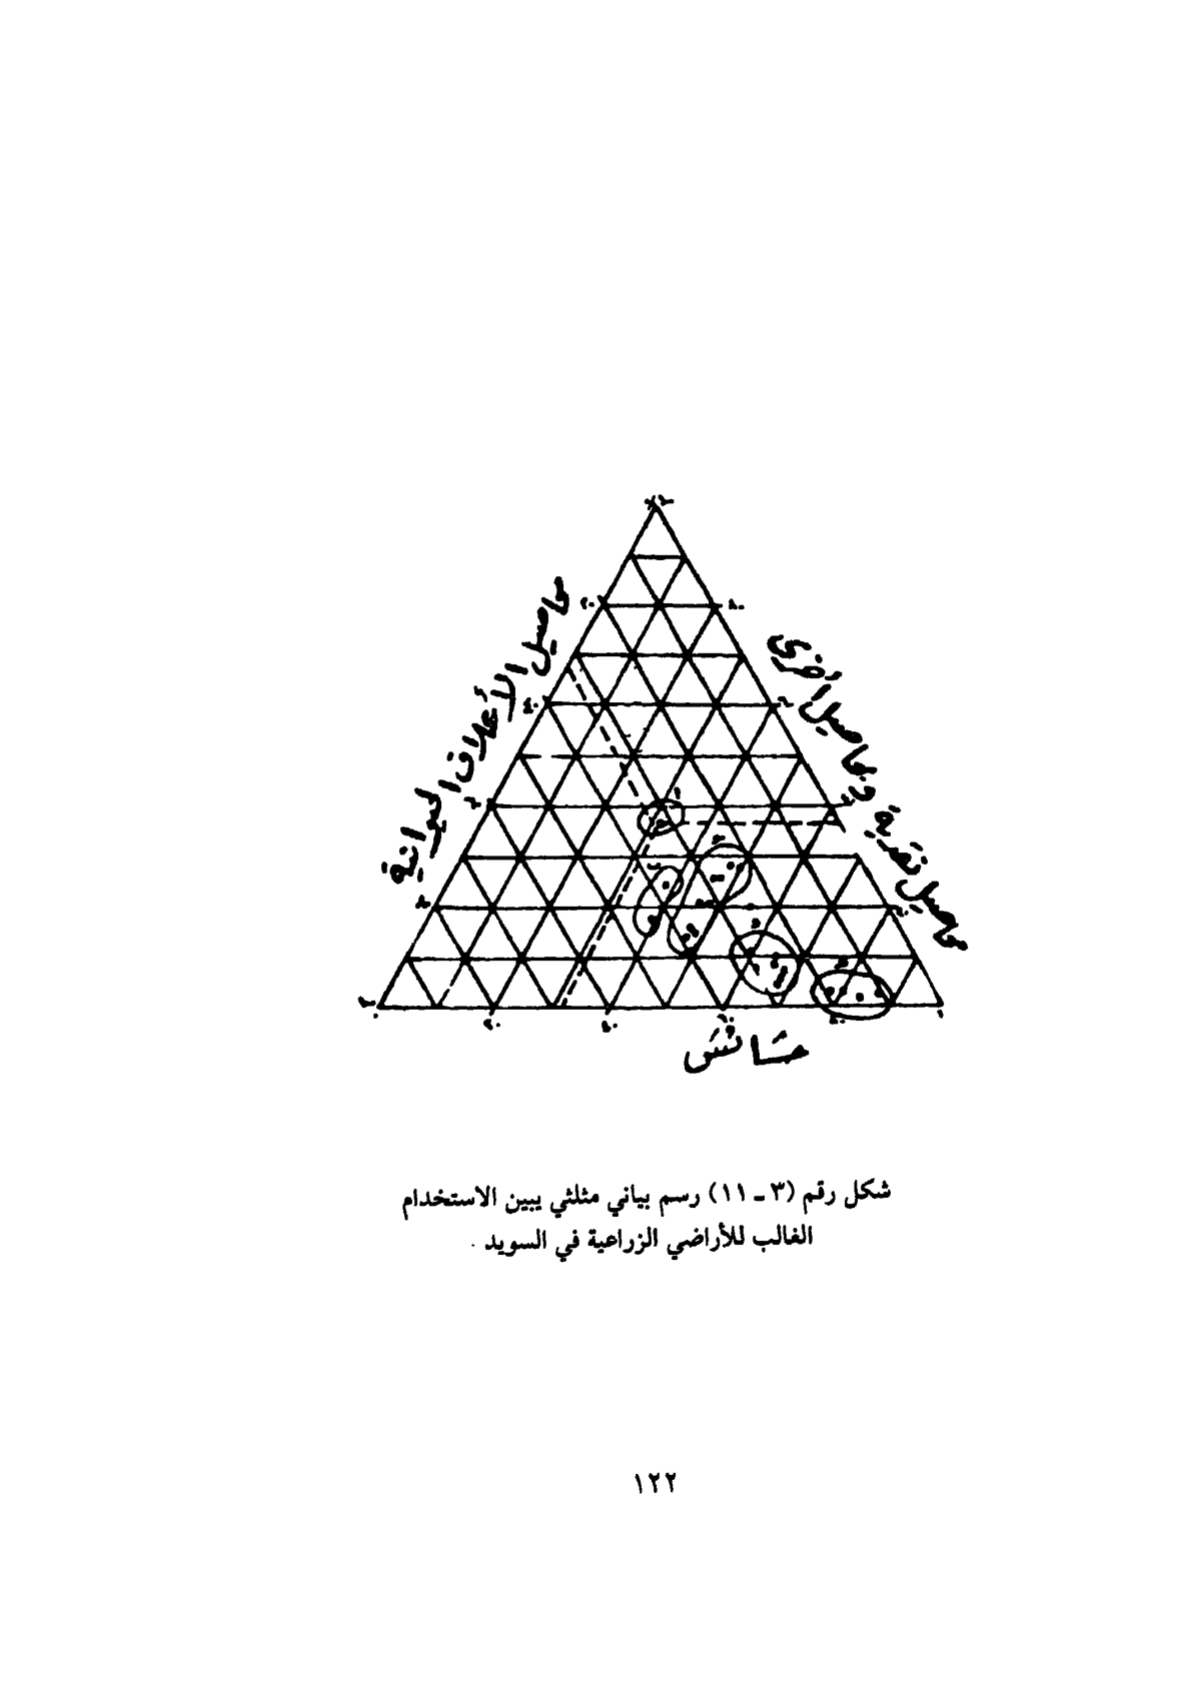 ٢٠
٨٠
محاصيل الأعلاف الحيوانية
محاصيل نقدية ومحاصيل أخرى
٤٠
٢٠
٤٠
حشائش
شكل رقم (٣ ـ ١١) رسم بياني مثلثي يبين الاستخدام
الغالب للأراضي الزراعية في السويد .
١٢٢